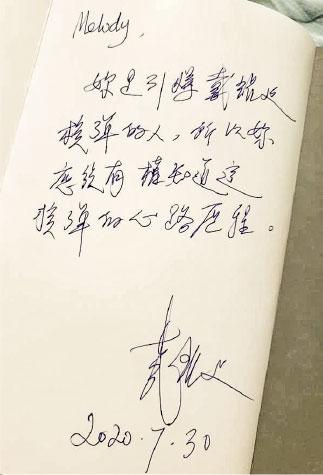 Melody,
妳是引爆戴錐人
核彈的人，所以妳
應該有權知道這
核彈的心路歷程。
2020.7.30